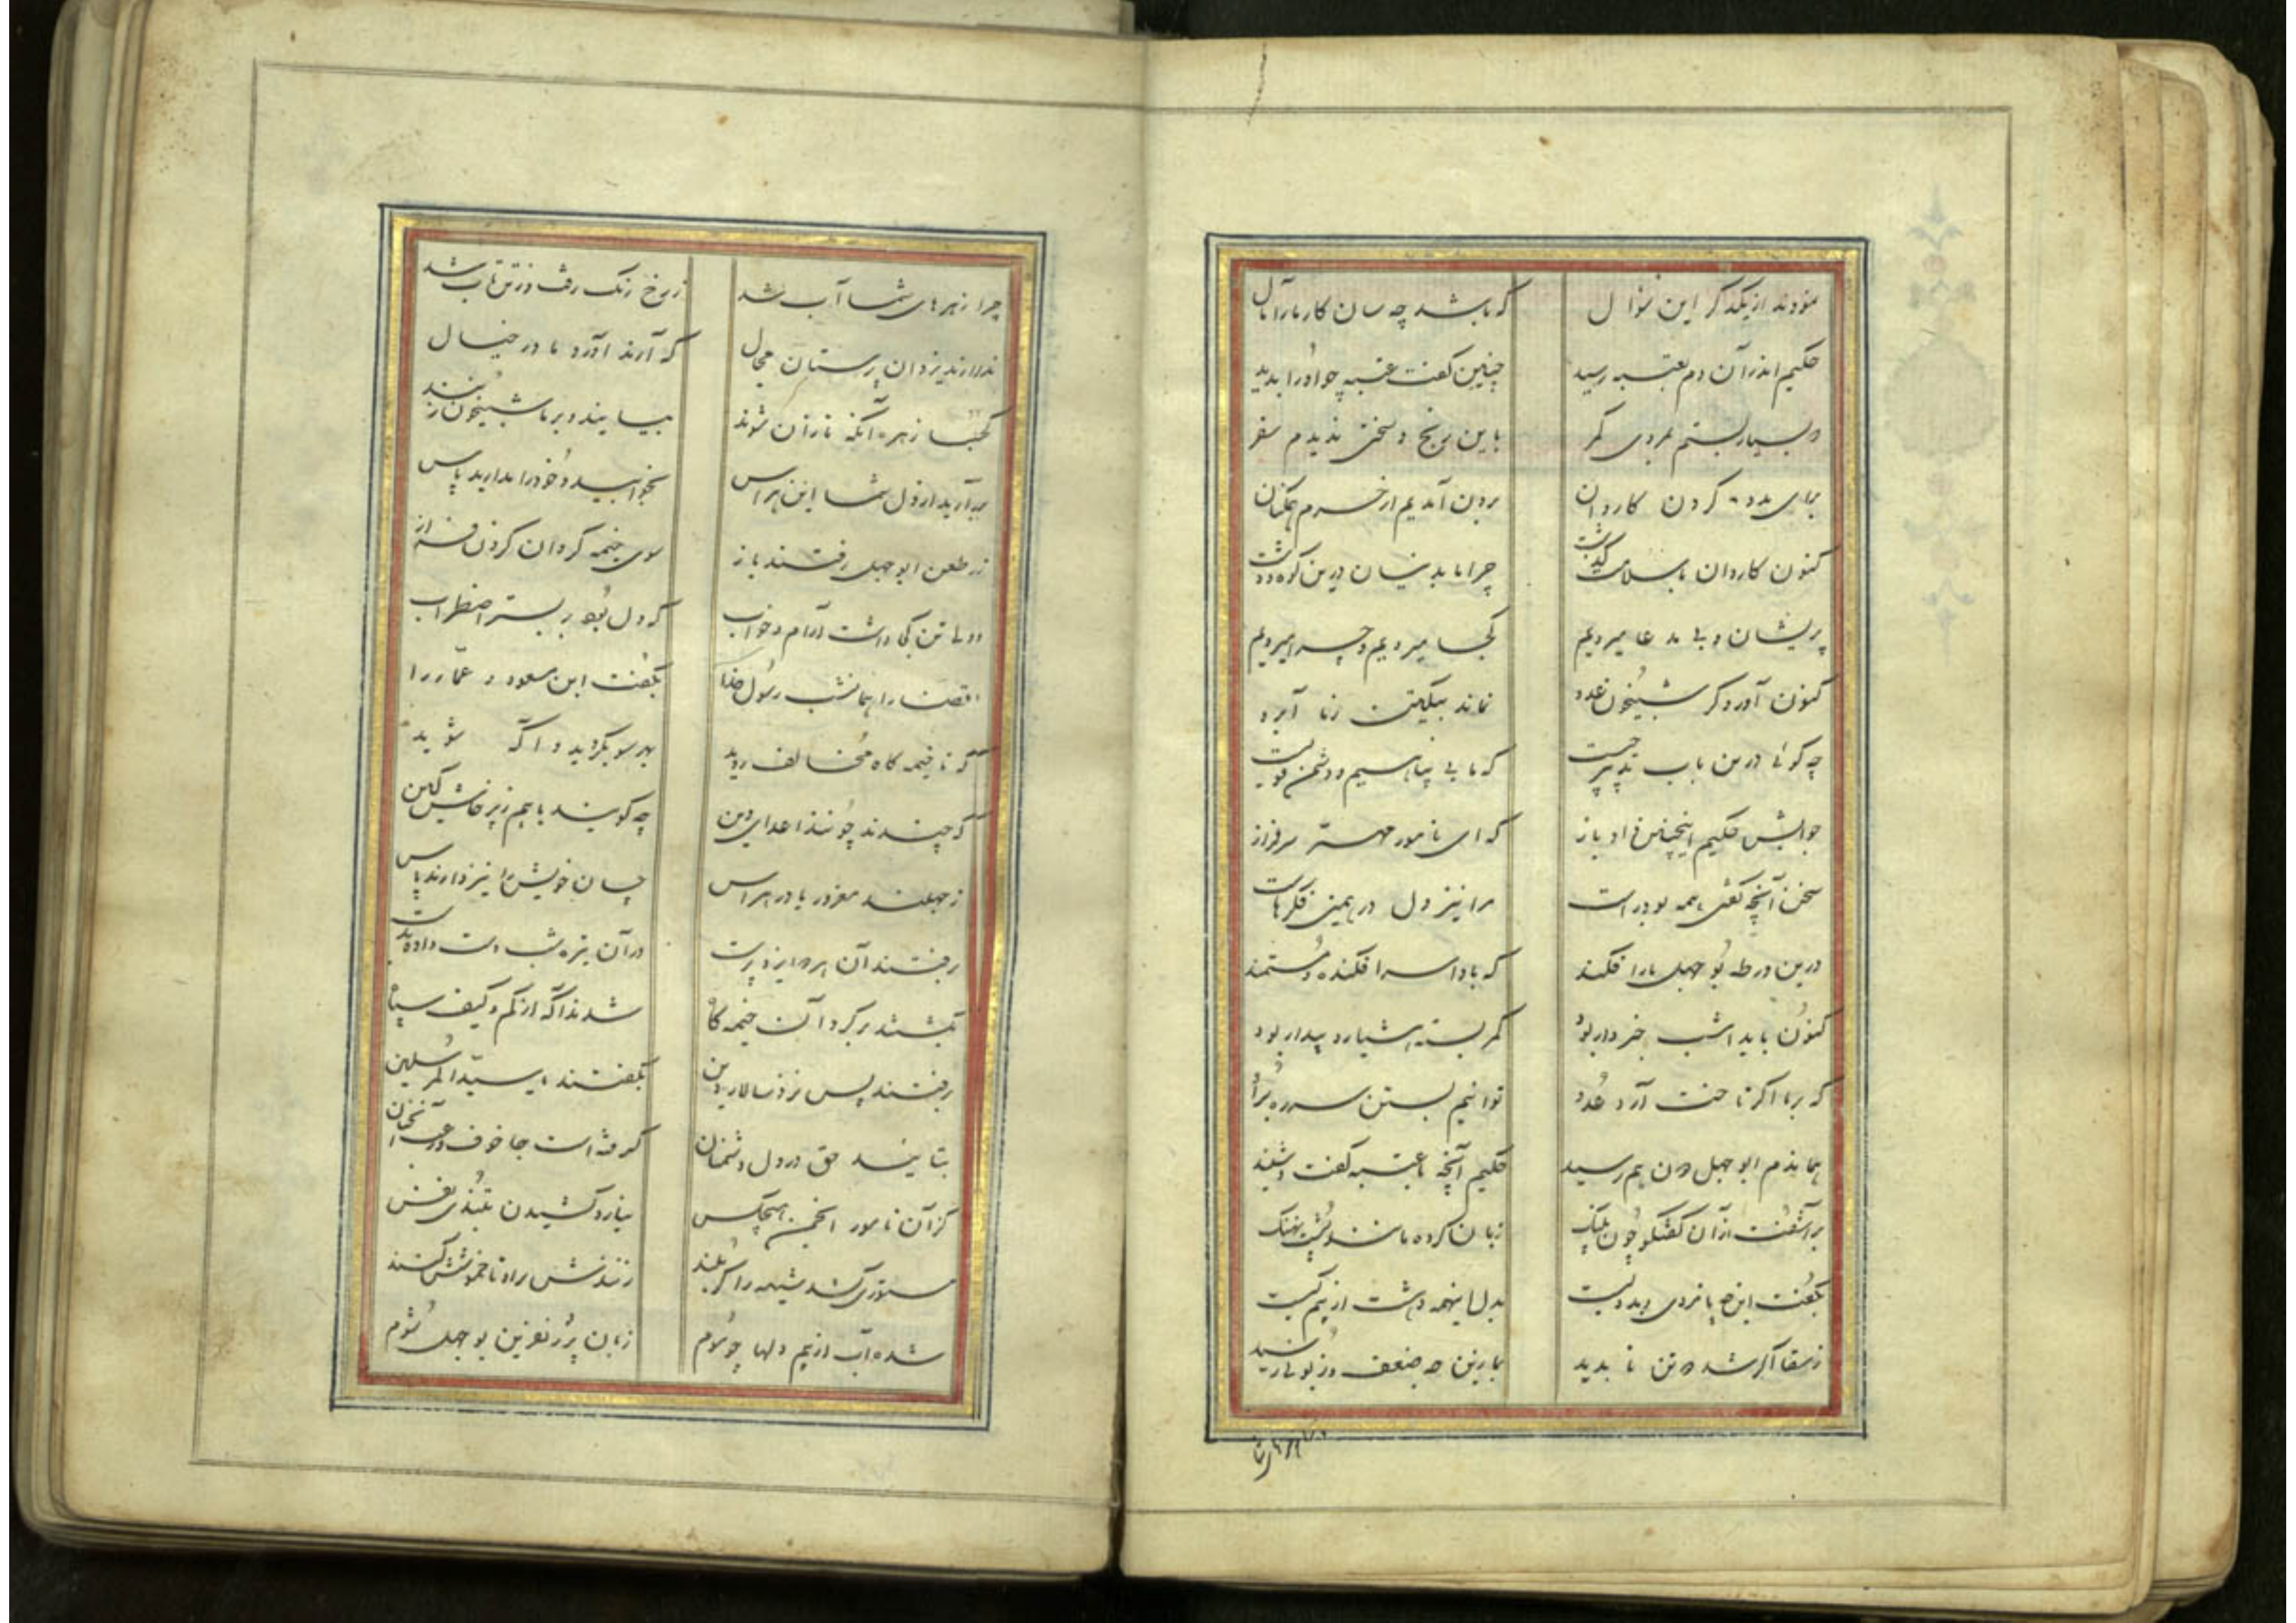 نمودند از یکدگر این سؤال که باشد چه سان کار ما را مآل
حکیم اندر آن دم بعتبه رسید چنین گفت عتبه چو او را بدید
بسیار بستم بمردی کمر باین رنج و سختی ندیدم سفر
برای مدد کردن کاروان برون آمدیم از حرم همگنان
کنون کاروان با سلامت گذشت چرا ما بدینسان درین کوه و دشت
پریشان و بی مدعا میرویم کجا میرویم و چرا میرویم
کنون آورد گر شبیخون عدو نماند بیگیتی ز ما آبرو
چه گوئی درین باب تدبیر چیست که ما بی پناهیم و دشمن قویست
جوابش حکیم اینچنین داد باز که ای نامور مهتر سرفراز
سخن آنچه گفتی همه بود راست مرا نیز دل در همین فکرهاست
درین ورطه بوجهل ما را فکند که بادا سرافکنده و مستمند
کنون باید امشب خبردار بود کمر بسته هشیار و بیدار بود
که بر ما اگر تاخت آرد عدو توانیم بستن سر ره برو
هماندم ابوجهل دون هم رسید حکیم آنچه با عتبه گفت و شنید
برآشفت از آن گفتگو چون پلنگ زبان کرده مانند پشت نهنگ
بگفت این چه پا مردی و بد دلیست بدل اینهمه دهشت از بیم کیست
ز سقا اگر شد دو تن ناپدید بما زین چه ضعف و زبونی رسید
چرا زهرهای شما آب شد ز رخ رنگ رفت و ز تن تاب شد
ندارند یزدان پرستان مجال که آرند آورد ما در خیال
کجا زهره آنکه نازان شوند بیایند و بر ما شبیخون زنند
برآرید از دل شما این هراس بخوابید و خود را بدارید پاس
ز طعن ابوجهل رفتند باز سوی خیمه گردان گردن فراز
ولی تن کجا داشت آرام و خواب که دل بود بر بستر اضطراب
قضا را همانشب رسول خدا بگفت ابن مسعود و عمار را
که تا خیمه گاه مخالف روید بهر سو بگردید و آگه شوید
که چندند و چونند اعدای دین چه گویند با هم ز پرخاش و کین
ز جهلند مغرور یا در هراس چسان خویش را نیز دارند پاس
برفتند آن هر دو ایزدپرست در آن تیره شب دست داده بدست
بگشتند بر گرد آن خیمه گاه شدند آگه از کم و کیف سپاه
برفتند پس نزد سالار دین بگفتند یا سید المرسلین
بتایید حق در دل دشمنان گرفته است جا خوف و رعب آنچنان
کز آن نامور انجمن هیچکس نیارد کشیدن بتندی نفس
ستوری کشد شیهه را گر بلند زنندش براه تا خموشش کنند
شده آب از بیم دلها چو موم زبان پر ز نفرین بوجهل شوم